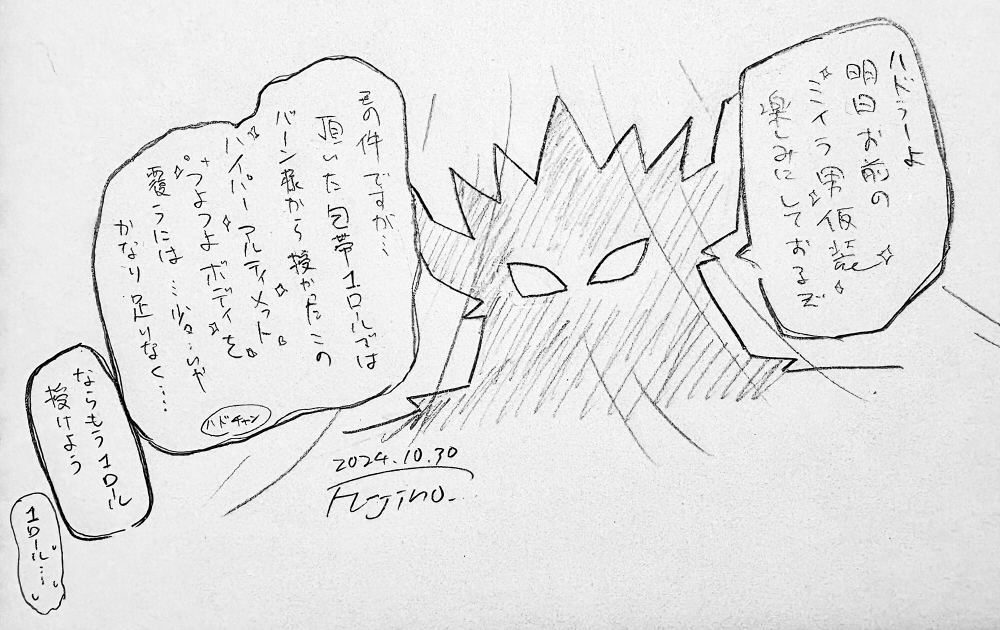 ハドラーよ
明日お前の
ミイラ男仮装
楽しみにしておるぞ
その件ですが…
頂いた包帯1ロールでは
バーン様から授かったこの
ハイパーアルティメット
つよつよボディを
覆うには…少々…いや
かなり足りなく…
ハドチャン
ならもう1ロール
授けよう
1ロール…
2024.10.30
Fujino.